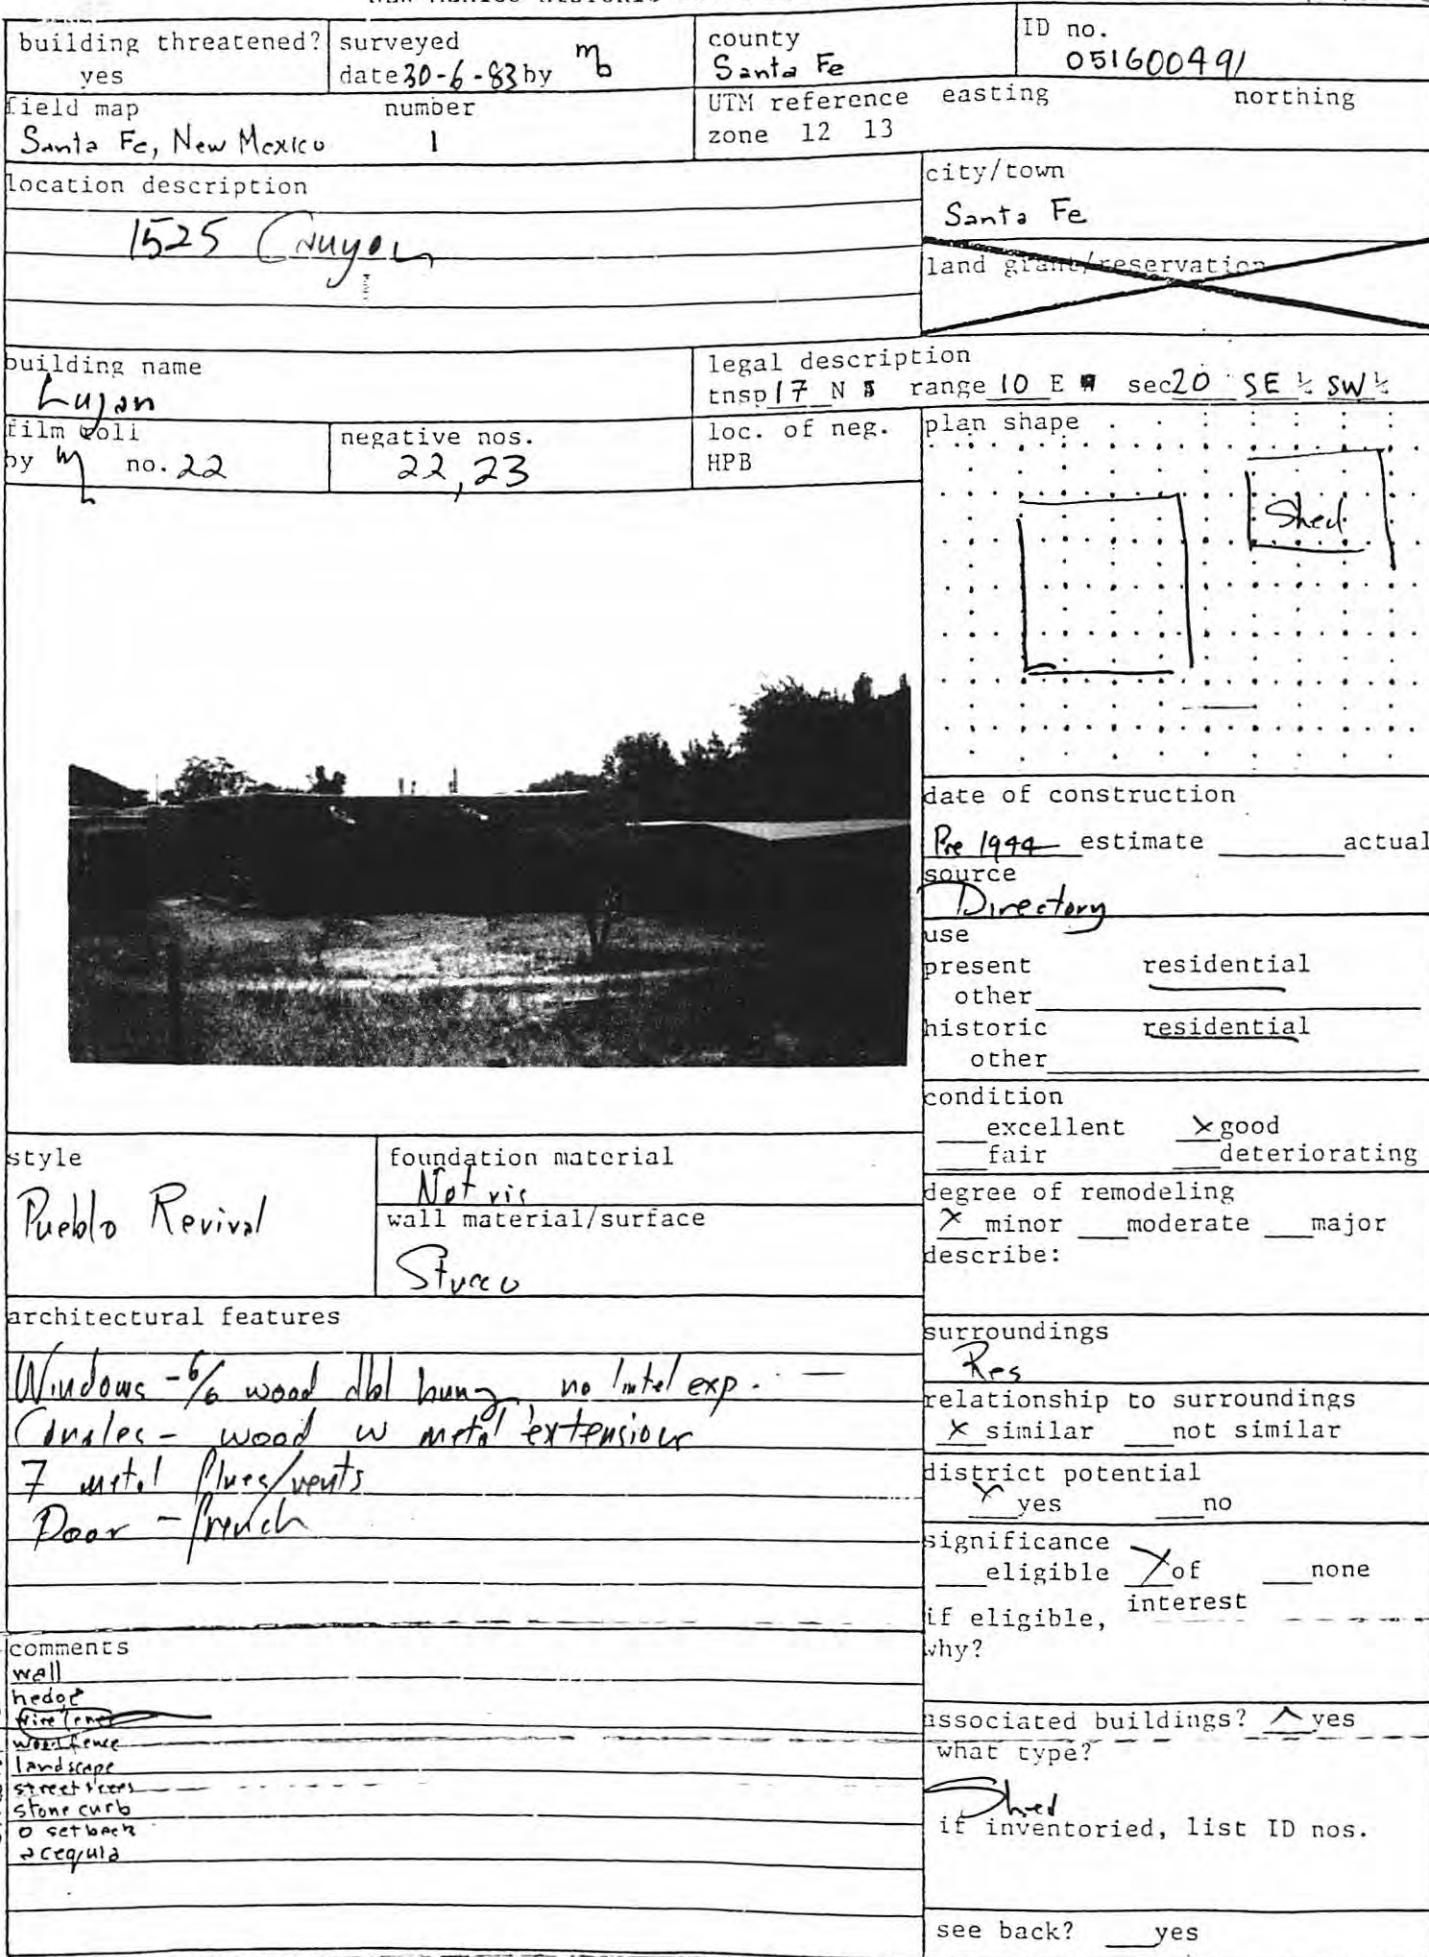 building threatened?
yes
surveyed
date 30-6-83 by mb
county
Santa Fe
ID no.
051600491
field map number
Santa Fe, New Mexico 1
UTM reference easting northing
zone 12 13
location description
1525 Canyon
city/town
Santa Fe
land grant/reservation
building name
Lujan
legal description
tnsp 17 N range 10 E sec 20 SE ¼ SW ¼
film roll
by no. 22
negative nos.
22, 23
loc. of neg.
HPB
plan shape
Shed
date of construction
Pre 1944 estimate actual
source
Directory
use
present residential
other
historic residential
other
condition
excellent × good
fair deteriorating
style
Pueblo Revival
foundation material
Not vis
wall material/surface
Stucco
degree of remodeling
× minor moderate major
describe:
architectural features
Windows - 6/6 wood dbl hung no lintel exp. —
Canales - wood w metal extensions
7 metal flues/vents
Door - french
surroundings
Res
relationship to surroundings
× similar not similar
district potential
× yes no
significance
eligible × of none
interest
if eligible,
why?
comments
wall
hedge
wire fence
wood fence
landscape
street trees
stone curb
0 setback
acequia
associated buildings? × yes
what type?
Shed
if inventoried, list ID nos.
see back? yes